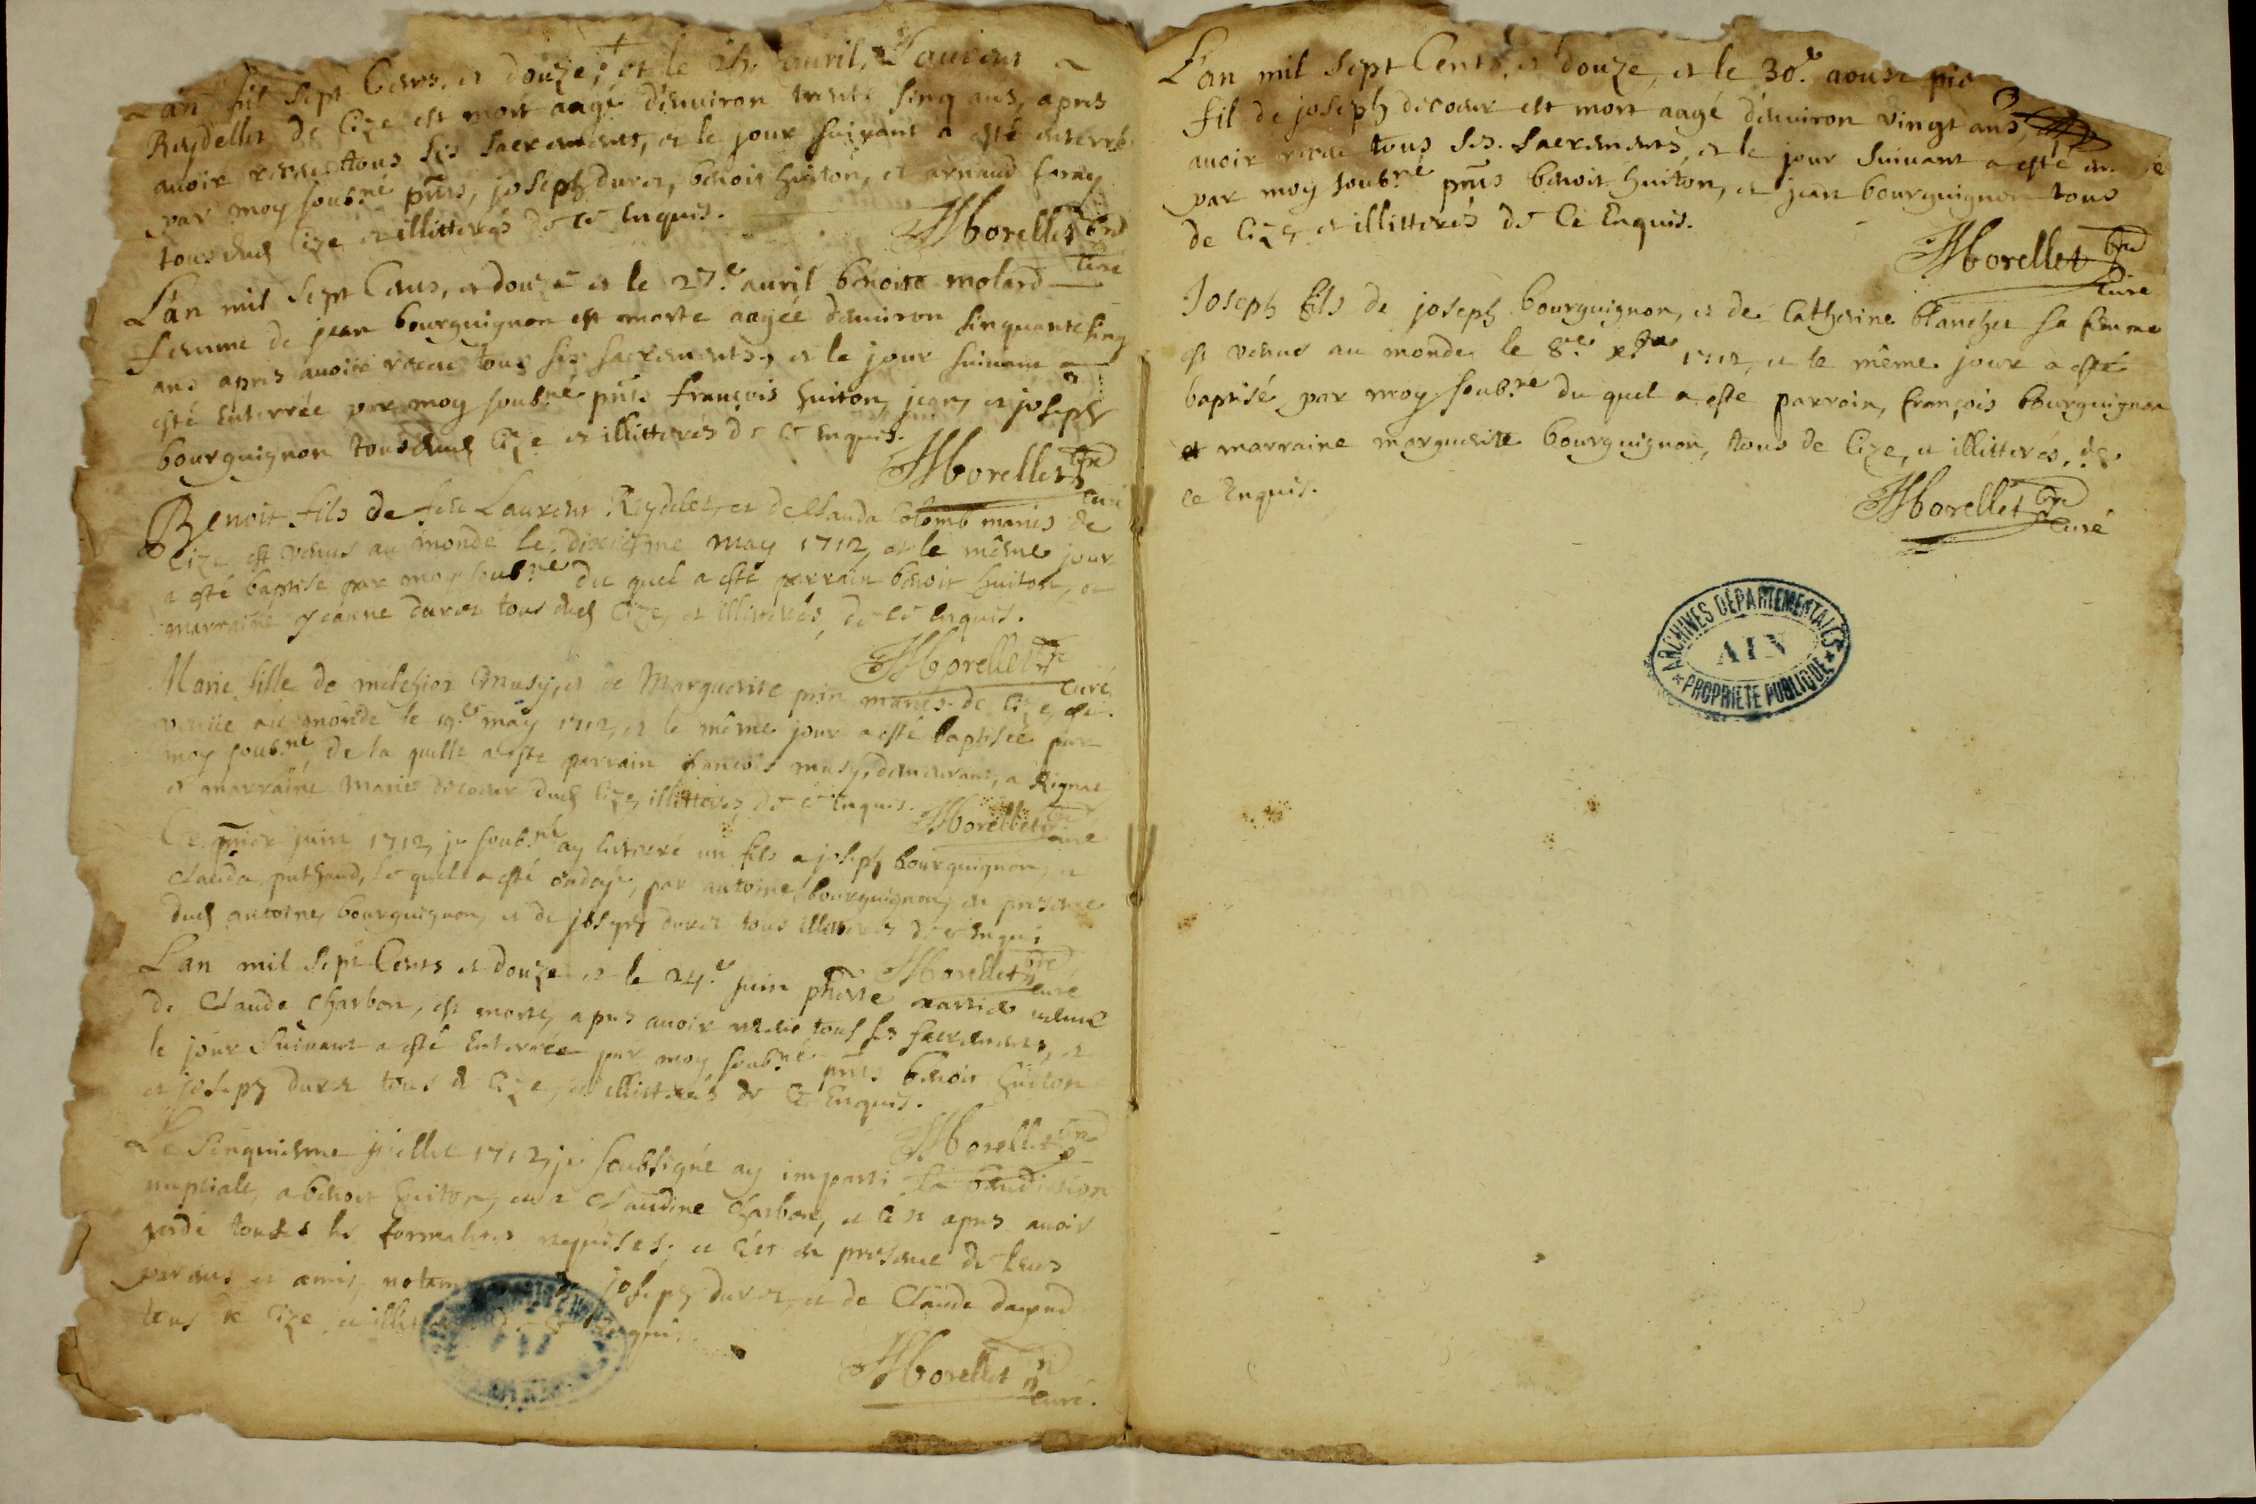 L'an mil sept Cents, et douze, et le avril, Laurent
Reydellet de Cize est mort aagé d'environ trente sinq ans, apres
avoir receu tous ses sacrements, et le jour suivant a esté enterré
par moy soub.né pnts, joseph duret, benoit huiton, et arnaud
tous dud Cize et illitterés de ce Enquis.
Morellet pre
Curé
L'an mil sept Cents, et douze et le 27.e avril benoite molard
femme de jean bourguignon est morte aagée d'environ sinquante sinq
ans apres avoir receu tous ses sacrements, et le jour suivant a
esté Enterrée par moy soub.né pnts françois huiton, jean, et joseph
bourguignon tous dud Cize et illitterés de ce Enquis.
Morellet pre
Curé
Benoit fils de feu Laurent Reydelet, et de Clauda Colomb mariés de
Cize est venus au monde le dixieme may 1712, et le même jour
a esté baptisé par moy soub.né du quel a esté parrain benoit huiton, et
marraine jeanne duret tous dud Cize, et illitterés, de ce enquis.
Morellet pre
Curé
Marie fille de melchior musy, et de Marguerite prin mariés de Cize, est
venue au monde le 19.e may 1712, et le même jour a esté baptisée par
moy soub.né, de la quelle a esté parrain françois musy, demeurant, a Rignat
et marraine Marie decoeur dud Cize, illitterés, de ce Enquis.
Morellet pre
Curé
Ce pmier juin 1712, je soub.né ay enterré un fils a joseph bourguignon, et
Clauda puthaud, le quel a esté ondoyé, par antoine bourguignon, en presence
dud antoine bourguignon, et de joseph duret tous illitterés de ce enquis
Morellet pre
Curé
L'an mil sept Cents et douze et le 24.e juin
de Claude Charbon, est morte, apres avoir receu tous ses sacrements, et
le jour suivant a esté Enterrée par moy soub.né pnts benoit huiton
et joseph duret tous de Cize, et illitterés de ce Enquis.
Morellet pre
Le sinquieme juillet 1712, je soubsigné ay imparti la benediction
nuptiale, a benoit huiton, et a Claudine Charbon, et ce apres avoir
gardé toutes les formalités requises; et ce en presence de leurs
parans et amis, joseph duret, et de Claude
tous de Cize, et
Morellet
Curé.
L'an mil sept Cents, et douze, et le 30.e aoust
fil de joseph decoeur est mort aagé d'environ vingt ans,
avoir receu tous ses sacrements, et le jour suivant a esté
par moy soub.né pnts benoit huiton, et jean bourguignon tous
de Cize, et illitterés de Ce Enquis.
Morellet pre
Curé
Joseph fils de joseph bourguignon, et de Catherine blanchet sa femme
est venus au monde le 8.e 1712, et le même jour a esté
baptisé par moy soub.né du quel a esté parrain, françois bourguignon
et marraine marguerite bourguignon, tous de Cize, et illitterés, de
ce Enquis.
Morellet pre
Curé
ARCHIVES DÉPARTEMENTALES
AIN
PROPRIÉTÉ PUBLIQUE